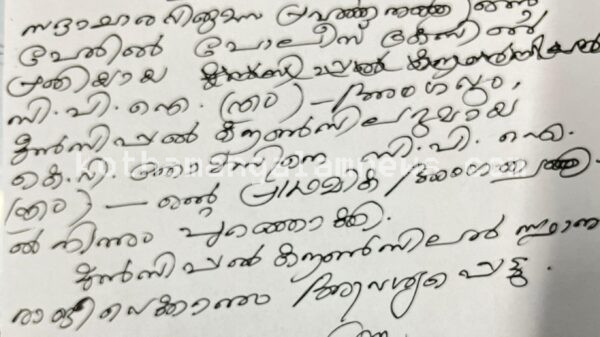 സദാചാര വിരുദ്ധ പ്രവർത്തനത്തിന്റെ
പേരിൽ പോലീസ് കേസിൽ
പ്രതിയായ മുൻസിപ്പൽ കൗൺസിലർ
സി.പി.ഐ. (എം) – അംഗവും,
മുൻസിപ്പൽ കൗൺസിലറുമായ
കെ.വി. തോമസിനെ സി.പി.ഐ.
(എം) – ന്റെ പ്രാഥമിക അംഗത്വത്തി
ൽ നിന്നും പുറത്താക്കി.
മുൻസിപ്പൽ കൗൺസിലർ സ്ഥാനം
രാജിവെക്കാനും ആവശ്യപ്പെട്ടു.
kothamangalamnews.com